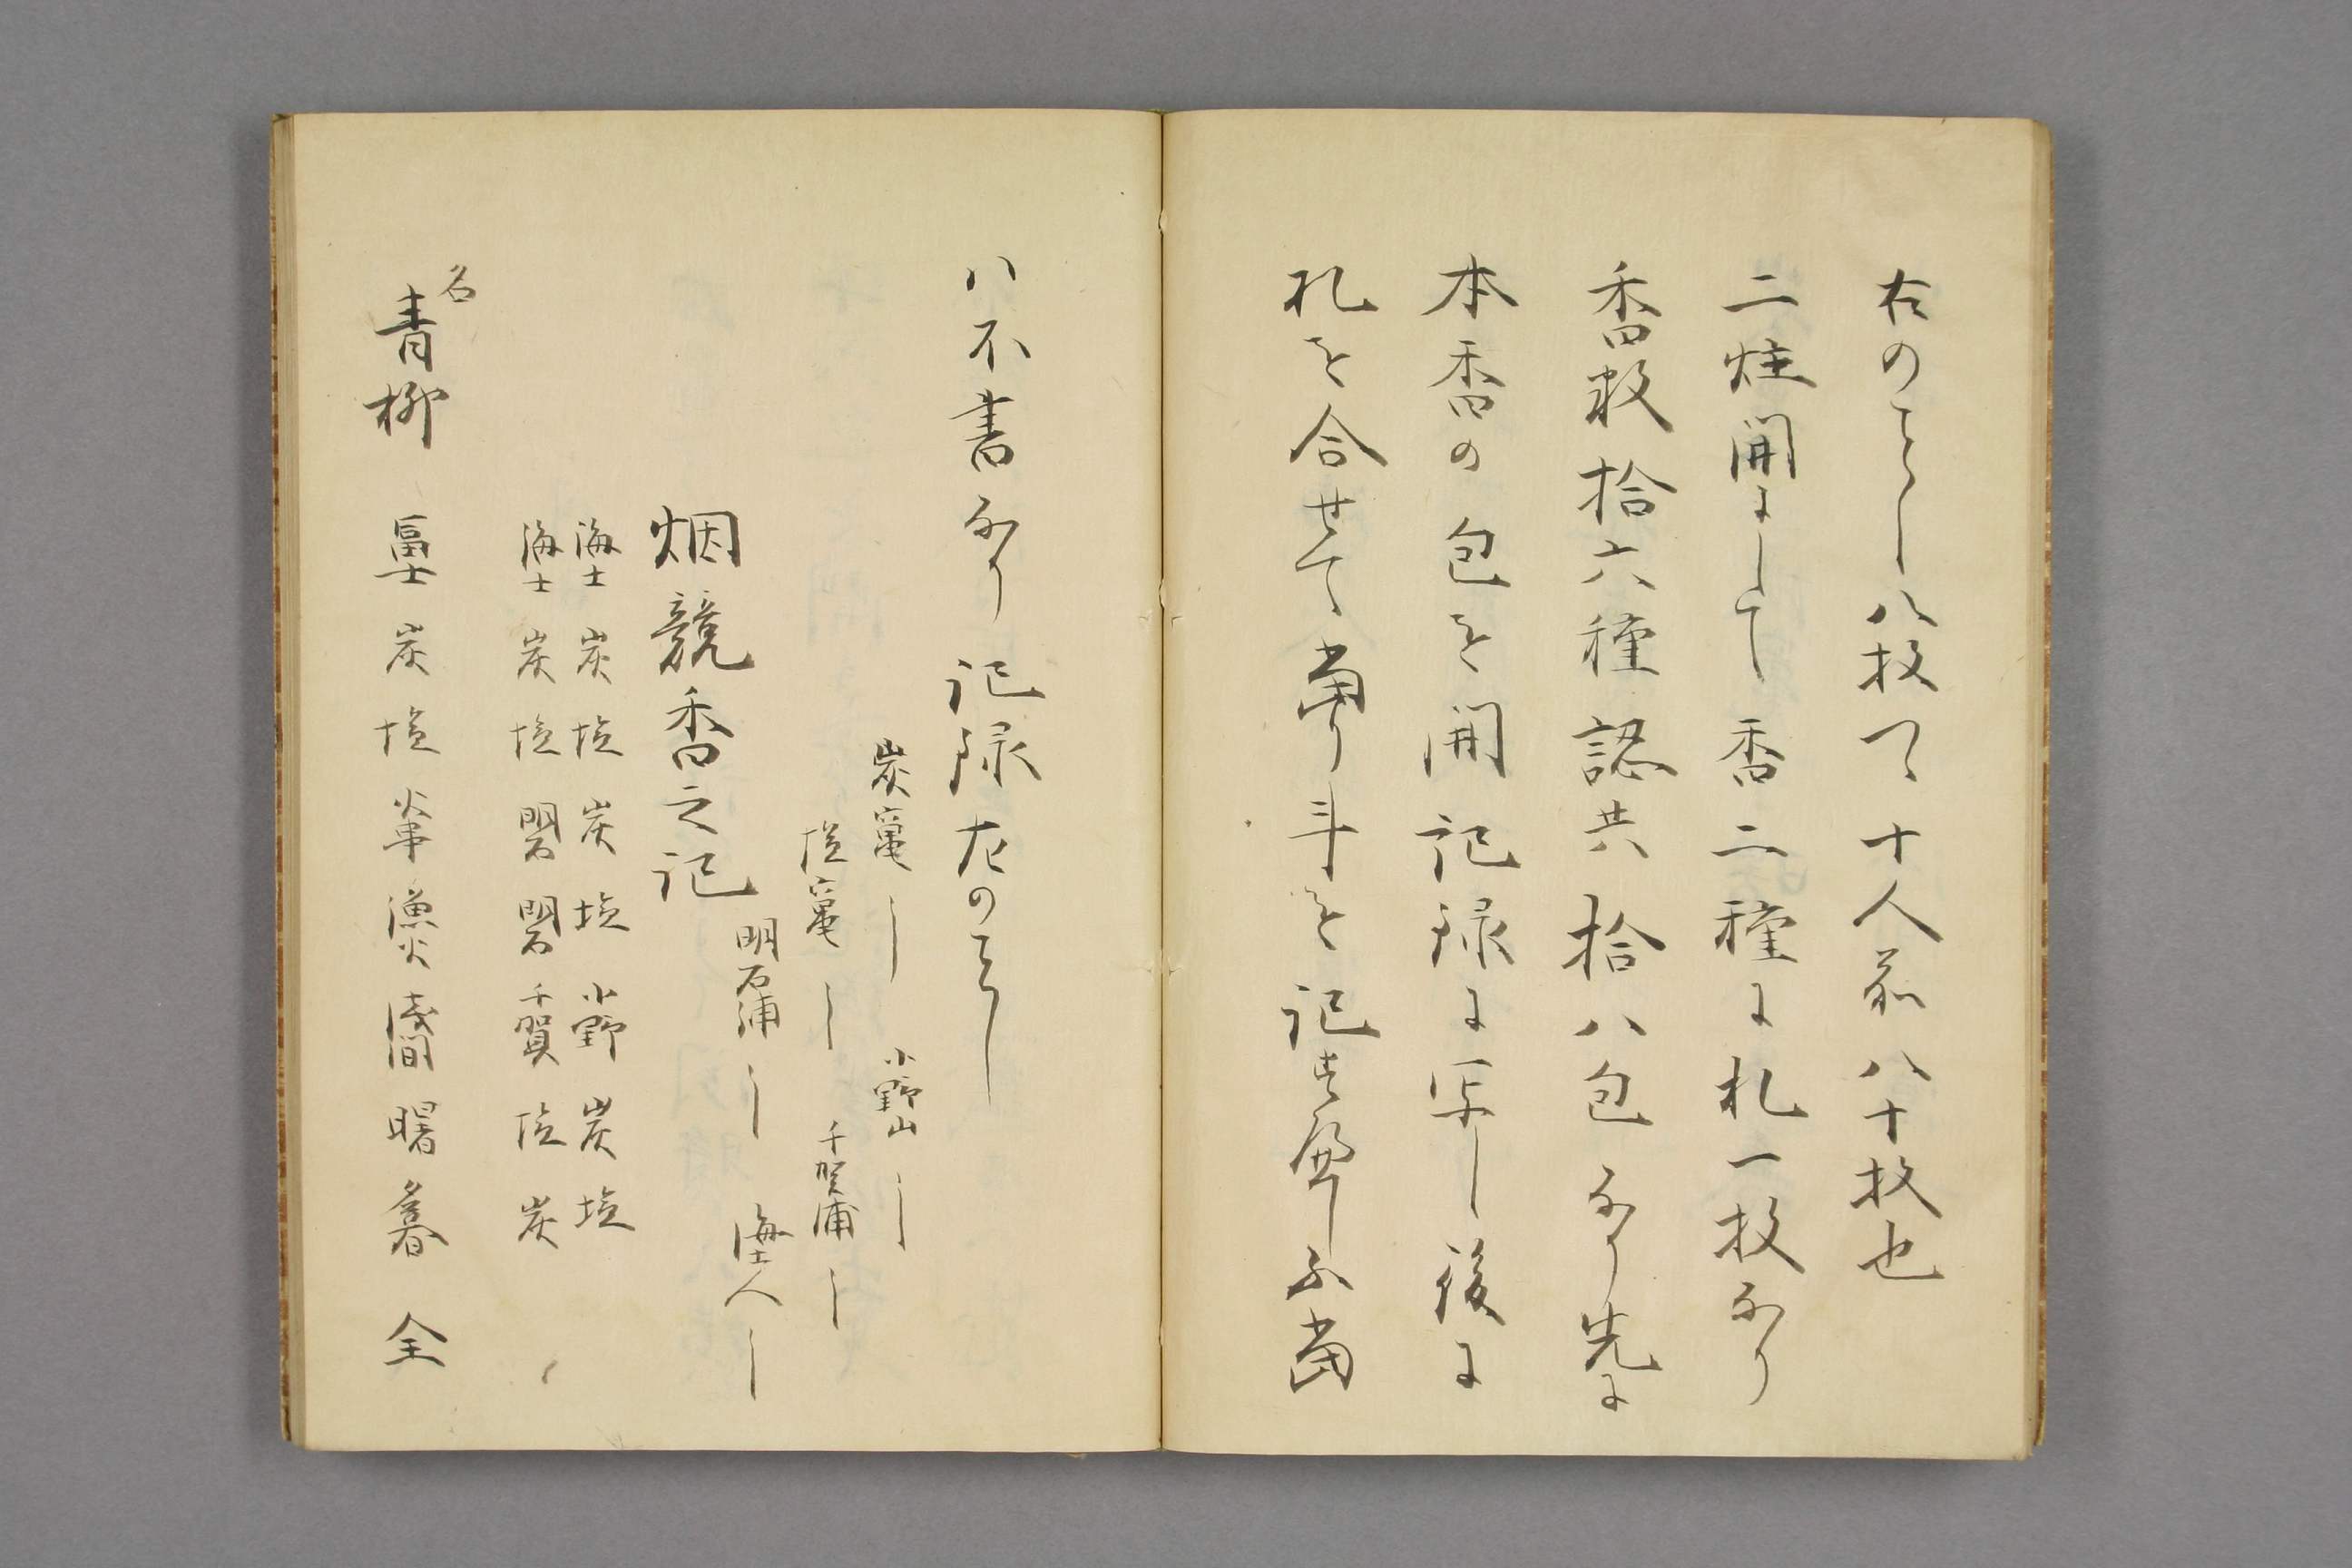 右のことし八枚つゝ十人前八十枚也
二炷開にして香二種に札一枚なり
香数拾六種認共拾八包なり先に
本香の包を開記録に写し後に
札を合せて當り斗を記す無し不當
ハ不書なり記録左のことし
炭竃し　小野山し
塩竃し　千賀浦し
明石浦し　海士人し
烟競香之記
海士　炭　塩　炭　塩　小野　炭　塩
海士　炭　塩　明石　明石　千賀　塩　炭
名
青柳　冨士　炭　塩　篝火　漁火　浅間　曙　夕暮　全